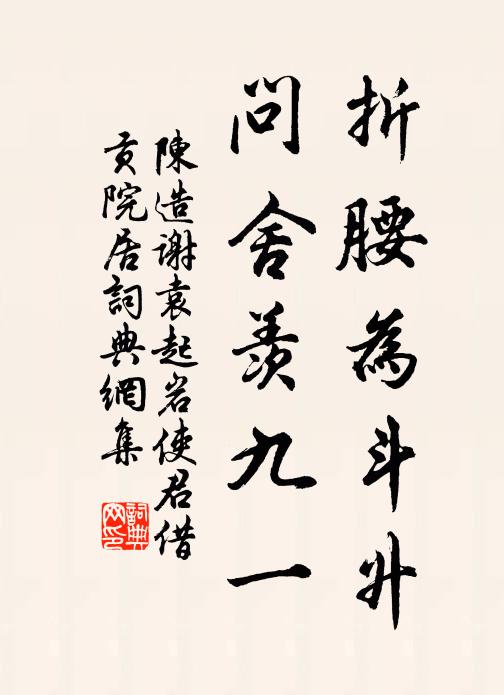 折腰為斗升
問舍羨九一
陳造謝袁起岩使君借
貢院居詞典網集
詞典网印